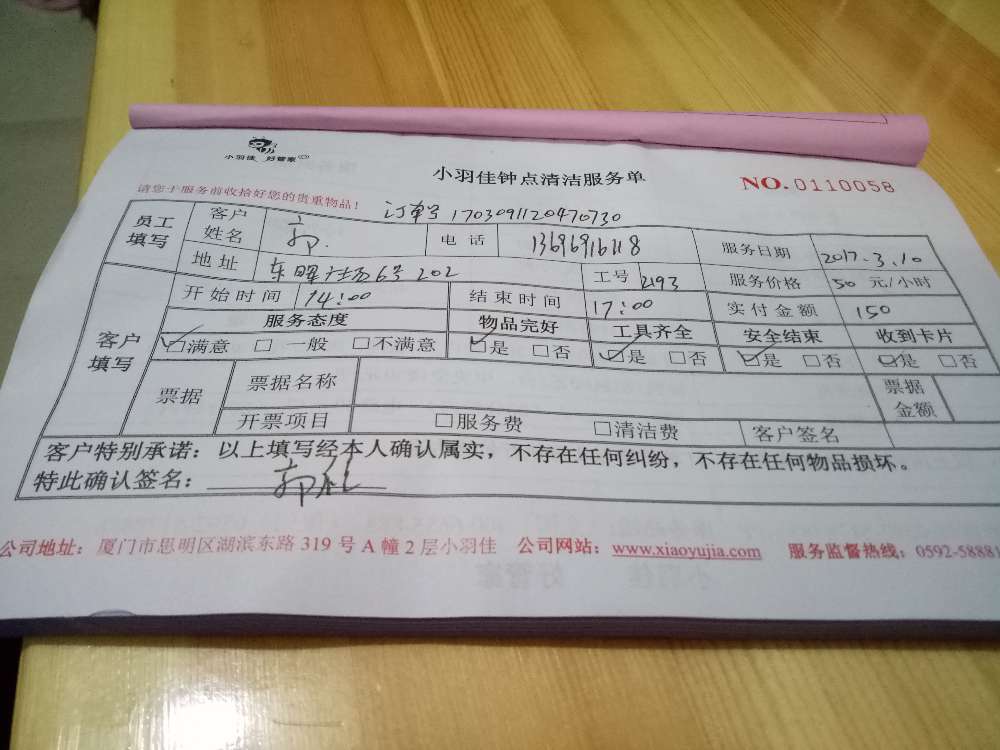 小羽佳 好管家
小羽佳钟点清洁服务单
NO.0110058
请您于服务前收拾好您的贵重物品！
订单号 1703091120470730
员工填写 客户姓名 郭 电话 13696916118 服务日期 2017.3.10
地址 东晖社历6号202 工号 2193 服务价格 50 元/小时
客户填写 开始时间 14:00 结束时间 17:00 实付金额 150
服务态度 物品完好 工具齐全 安全结束 收到卡片
☑满意 □一般 □不满意 ☑是 □否 ☑是 □否 ☑是 □否 ☑是 □否
票据 票据名称 票据金额
开票项目 □服务费 □清洁费 客户签名
客户特别承诺：以上填写经本人确认属实，不存在任何纠纷，不存在任何物品损坏。
特此确认签名： 郭
公司地址：厦门市思明区湖滨东路 319 号 A 幢 2 层小羽佳 公司网站：www.xiaoyujia.com 服务监督热线：0592-58881